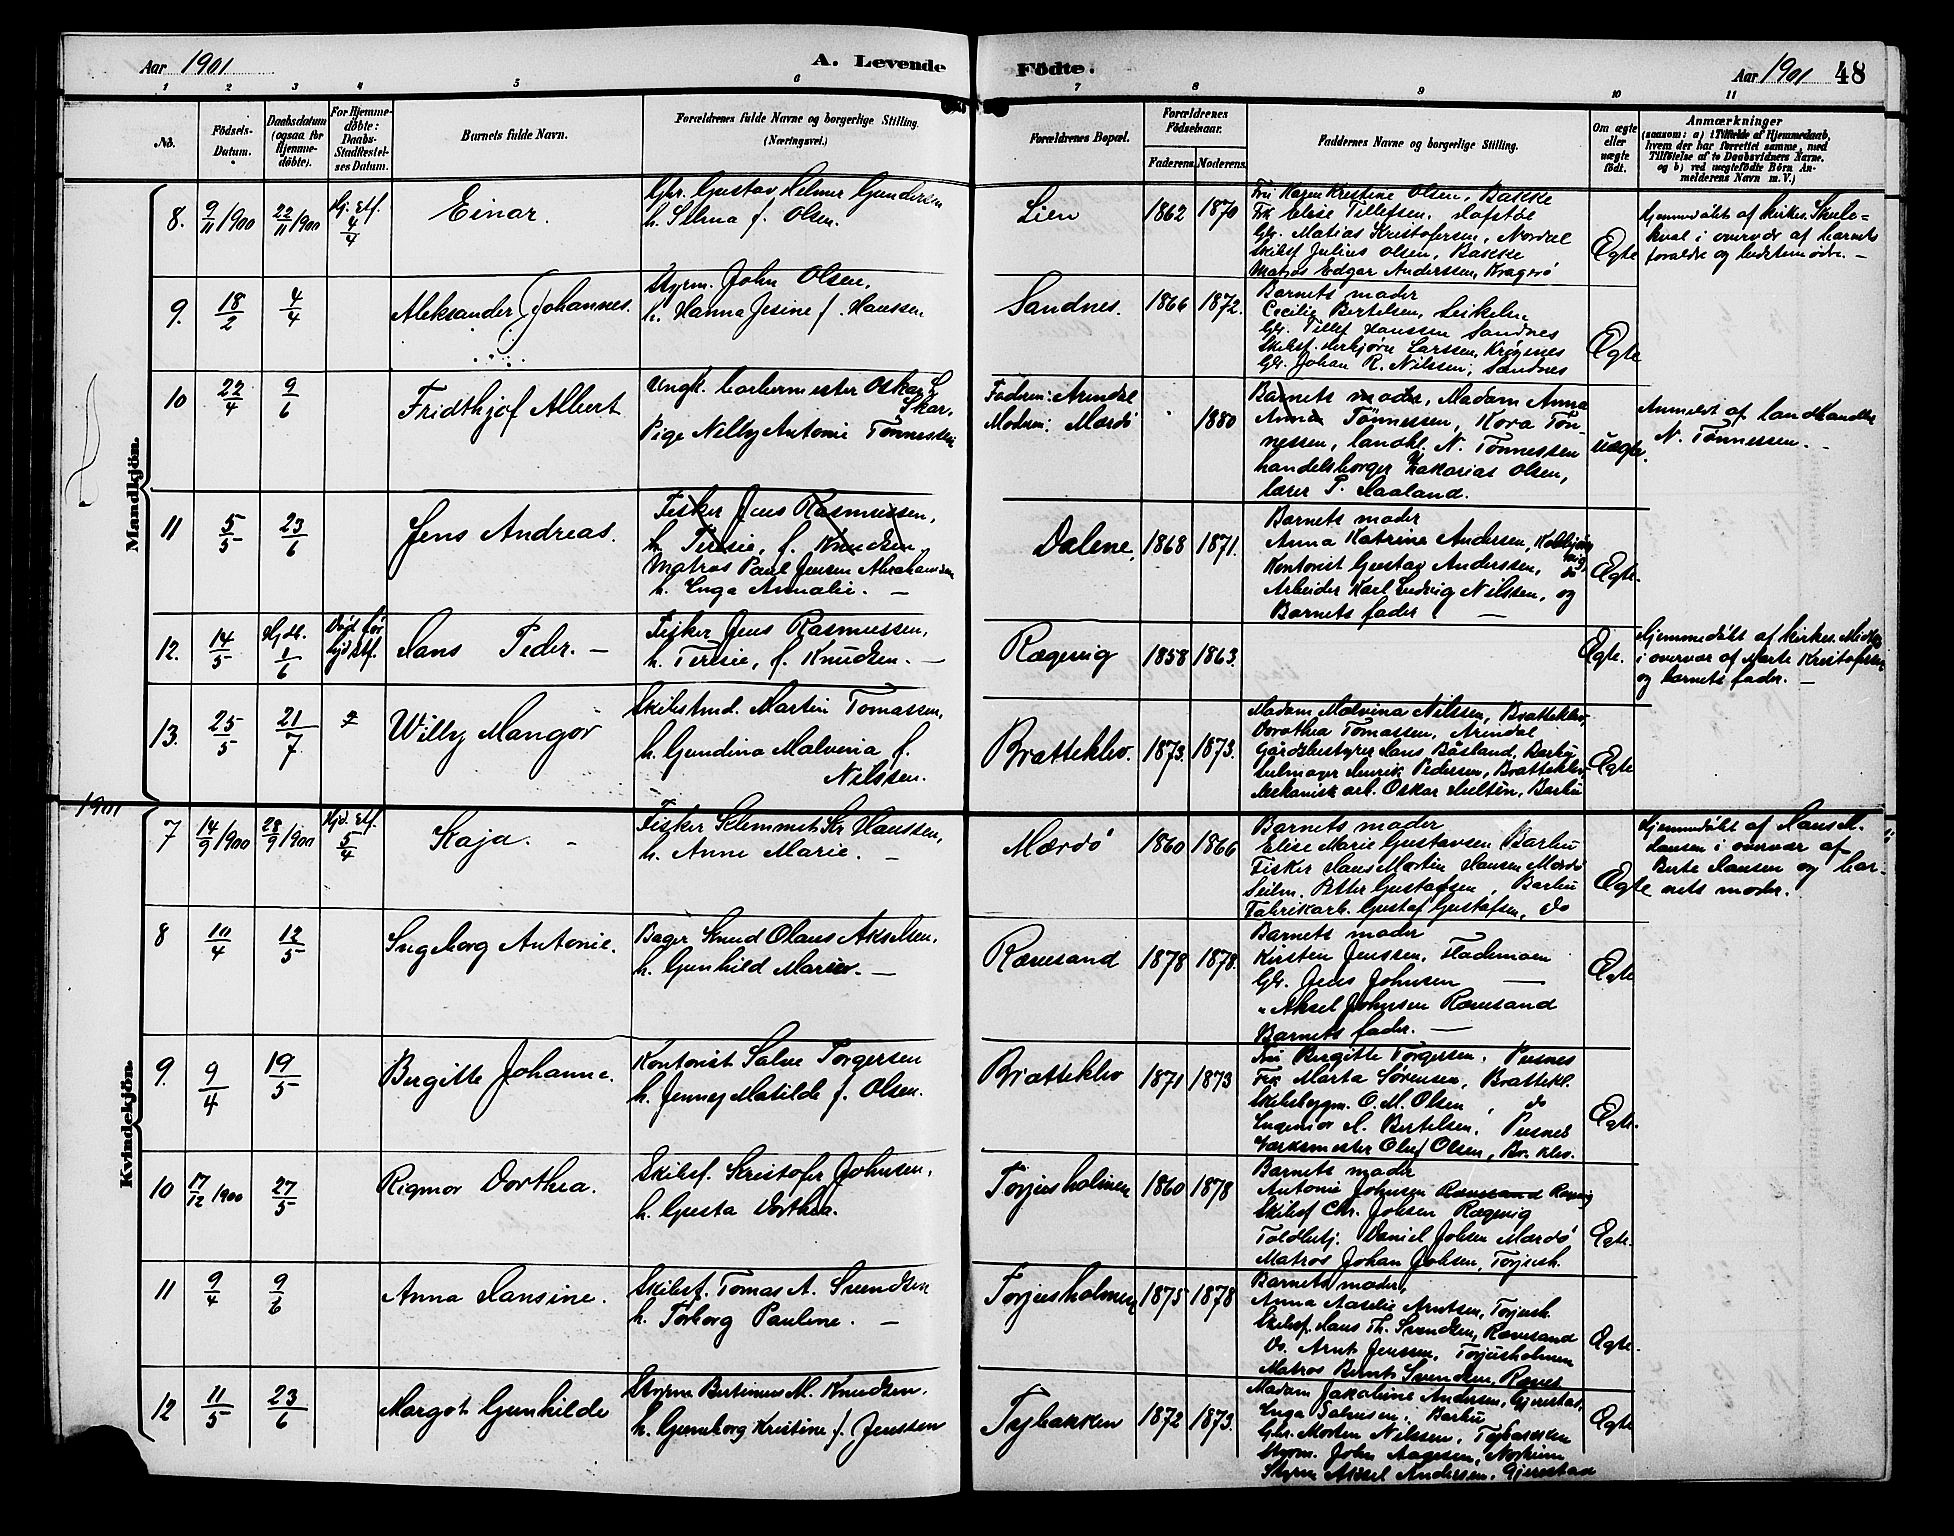 Aar 1901
A. Levende
Födte.
Aar 1901 48
1 2 3 4 5 6 7 8 9 10 11
No.
Födsels-Datum.
Daabsdatum (ogsaa for Hjemme-döbte).
For Hjemme-döbte: Daabs-Stadfæstel-ses Datum.
Barnets fulde Navn.
Forældrenes fulde Navne og borgerlige Stilling.
(Næringsvei.)
Forældrenes Bopæl.
Forældrenes Födselsaar.
Faderens. Moderens.
Faddernes Navne og borgerlige Stilling.
Om ægte eller uægte födt.
Anmærkninger
(saasom: a) i Tilfælde af Hjemmedaab,
hvem der har forrettet samme, med
Tilföielse af to Daabsvidners Navne,
og b) ved uægtefödte Börn An-
melderens Navn m. V.)
Mandkjön.
8. 9/11 1900 22/11 1900 Hj. Stf. 4/4
Einar.
Gbr. Gustav Helmer Gundersen
h. Selma f. Olsen.
Lien 1862 1870
Fru Karen Kristine Olsen, Bakke
Frk Elise Tellefsen, Hofstøl
Gbr. Matias Kristofersen, Nordal
Skibsf. Julius Olsen, Bakke
Matros Edgar Anderssen, Kragerø
Ægte
Hjemmedøbt af Kirkes.
i overvær af barnets
forældre og
9. 18/2 4/4
Aleksander Johannes.
Styrm. John Olsen,
h. Hanna Jesine f. Hanssen
Sandnes. 1866 1872.
Barnets moder
Cecilie Bertelsen,
Gbr. Tellef Hanssen Sandnes
Skibsf. Larssen, Krøgenes
Gbr. Johan R. Nilssen, Sandnes
Ægte
10 22/4 9/6
Fridthjof Albert
Ungk. barbermester Oskar S.
Skar,
Pige Nelly Antonie Tønnessen
Faderen: Arendal
Moderen: Mærdø
1880
Barnets moder, Madam Anna
Tønnessen, Kora Tøn-
nessen, landhl. N. Tønnessen
handelsborger Zakarias Olsen,
lærer P. Haaland.
uægte.
Anmeldt af landhandler
N. Tønnessen.
11 5/5 23/6
Jens Andreas.
Fisker Jens Rasmussen,
h. Teresie, f. Knudsen
Matros Paul Jensen Abrahamsen
h. Inga Annalie. —
Dalene. 1868 1871.
Barnets moder
Anna Katrine Andersen,
Kontorist Gustav Anderssen, do
Arbeider Karl Ludvig Nilssen, og
Barnets fader —
Ægte.
12. 14/5 Hjdb. 1/6 Død før hjd stf.
Hans Peder. —
Fisker Jens Rasmussen,
h. Teresie, f. Knudsen. —
Rægevig 1858 1863.
Ægte.
Hjemmedøbt af Kirkes.
i overvær af Marte Kristofersen
og barnets fader. —
13. 25/5 21/7
Willy Mangor
Skibstmd. Martin Tomassen,
h. Gundina Malvina f.
Nilssen.
Bratteklev. 1873. 1873.
Madam Malvina Nilssen, Bratteklev,
Dorothea Tomassen, Arendal
Gårdsbestyrer Hans Båsland, Barbu
Seilmager Henrik Pedersen, Bratteklev
Mekanisk arb. Oskar Hultin, Barbu
Ægte
1901
Kvindekjön.
7 14/9 1900 28/9 1900 Hjd. Stf. 5/4
Kaja. —
Fisker Klemmet Kr Hanssen,
h. Anne Marie. —
Mærdø 1860 1866
Barnets moder
Elise Marie Gustavsen Barbu
Fisker Hans Martin Hansen Mærdø
Seilm. Petter Gustafsen, Barbu
Fabrikarb. Gustaf Gustafsen, do
Ægte
Hjemmedøbt af Hans M.
Hansen i overvær af
Berte Hansen og bar-
nets moder.
8 10/4 12/5
Ingeborg Antonie.
Bager Knud Olaus Akselsen,
h. Gunhild Marie. —
Rævesand 1878 1878.
Barnets moder
Kirsten Jenssen, Flademoen
Gbr. Jens Johnsen —
" Aksel Johnsen Rævesand
Barnets fader. —
Ægte
9. 9/4 19/5
Birgitte Johanne.
Kontorist Salve Torgersen
h. Jenney Matilde f. Olsen.
Bratteklev 1871 1873
Fru Birgitte Torgersen, Pusnes
Frk Marta Sørensen, Brattekl.
Skibsbygm. O. M. Olsen, do
Ingeniør H. Bertelsen, Pusnes
Værksmester Oluf Olsen, Br. klev.
Ægte.
10 17/12 1900 27/5
Rigmor Dorthea.
Skibsf. Kristofer Johnsen,
h. Gusta Dorthea.
Torjusholmen 1860 1878
Barnets moder
Antonie Johnsen Rævesand Rægevig
Skibsf Chr. Johsen Rægevig
Toldbetj. Daniel Johsen Mærdø
Matros Johan Johsen, Torjush.
Ægte.
11 9/4 9/6
Anna Hansine.
Skibsf. Tomas A. Svendsen
h. Torborg Pauline. —
Torjusholmen 1875 1878
Barnets moder,
Anna Aaselie Arntsen, Torjush.
Skibsf. Hans Th. Svendsen, Rævesand
Do. Arnt Jenssen, Torjusholmen
Matros Bernt Svendsen, Ræves
Ægte.
12 11/5 23/6
Margot Gunhilde
Styrm Bertinius M. Knudsen.
h. Gunborg Kristine f. Jenssen
Tybakken 1872 1873.
Madam Jakobine Andersen, Gjerestad,
Inga Salvesen, Barbu
Gbr. Morten Nilssen, Tybakken
Styrm. John Aagesen,
Styrm Aksel Andersen, Gjerestad
Ægte